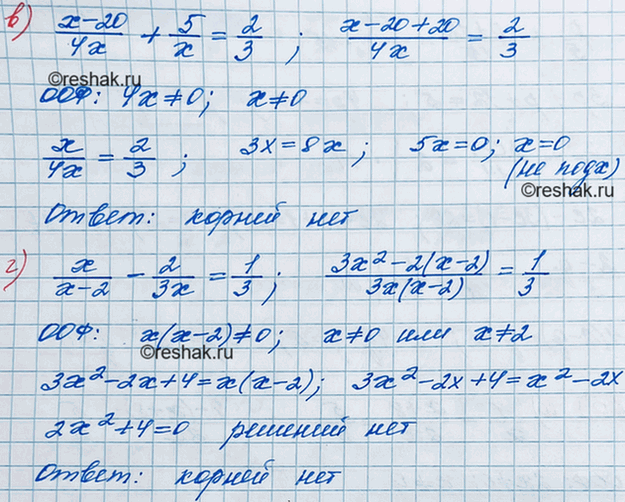 в) (x-20)/4x + 5/x = 2/3 ; (x-20+20)/4x = 2/3
©reshak.ru
ООФ: 4x ≠ 0; x ≠ 0
x/4x = 2/3 ; 3x = 8x ; 5x = 0; x = 0
(не подх)
©reshak.ru
Ответ: корней нет
г) x/(x-2) - 2/3x = 1/3 ; (3x² - 2(x-2))/(3x(x-2)) = 1/3
ООФ: x(x-2) ≠ 0; x ≠ 0 или x ≠ 2
©reshak.ru
3x² - 2x + 4 = x(x-2); 3x² - 2x + 4 = x² - 2x
2x² + 4 = 0 решений нет
Ответ: корней нет